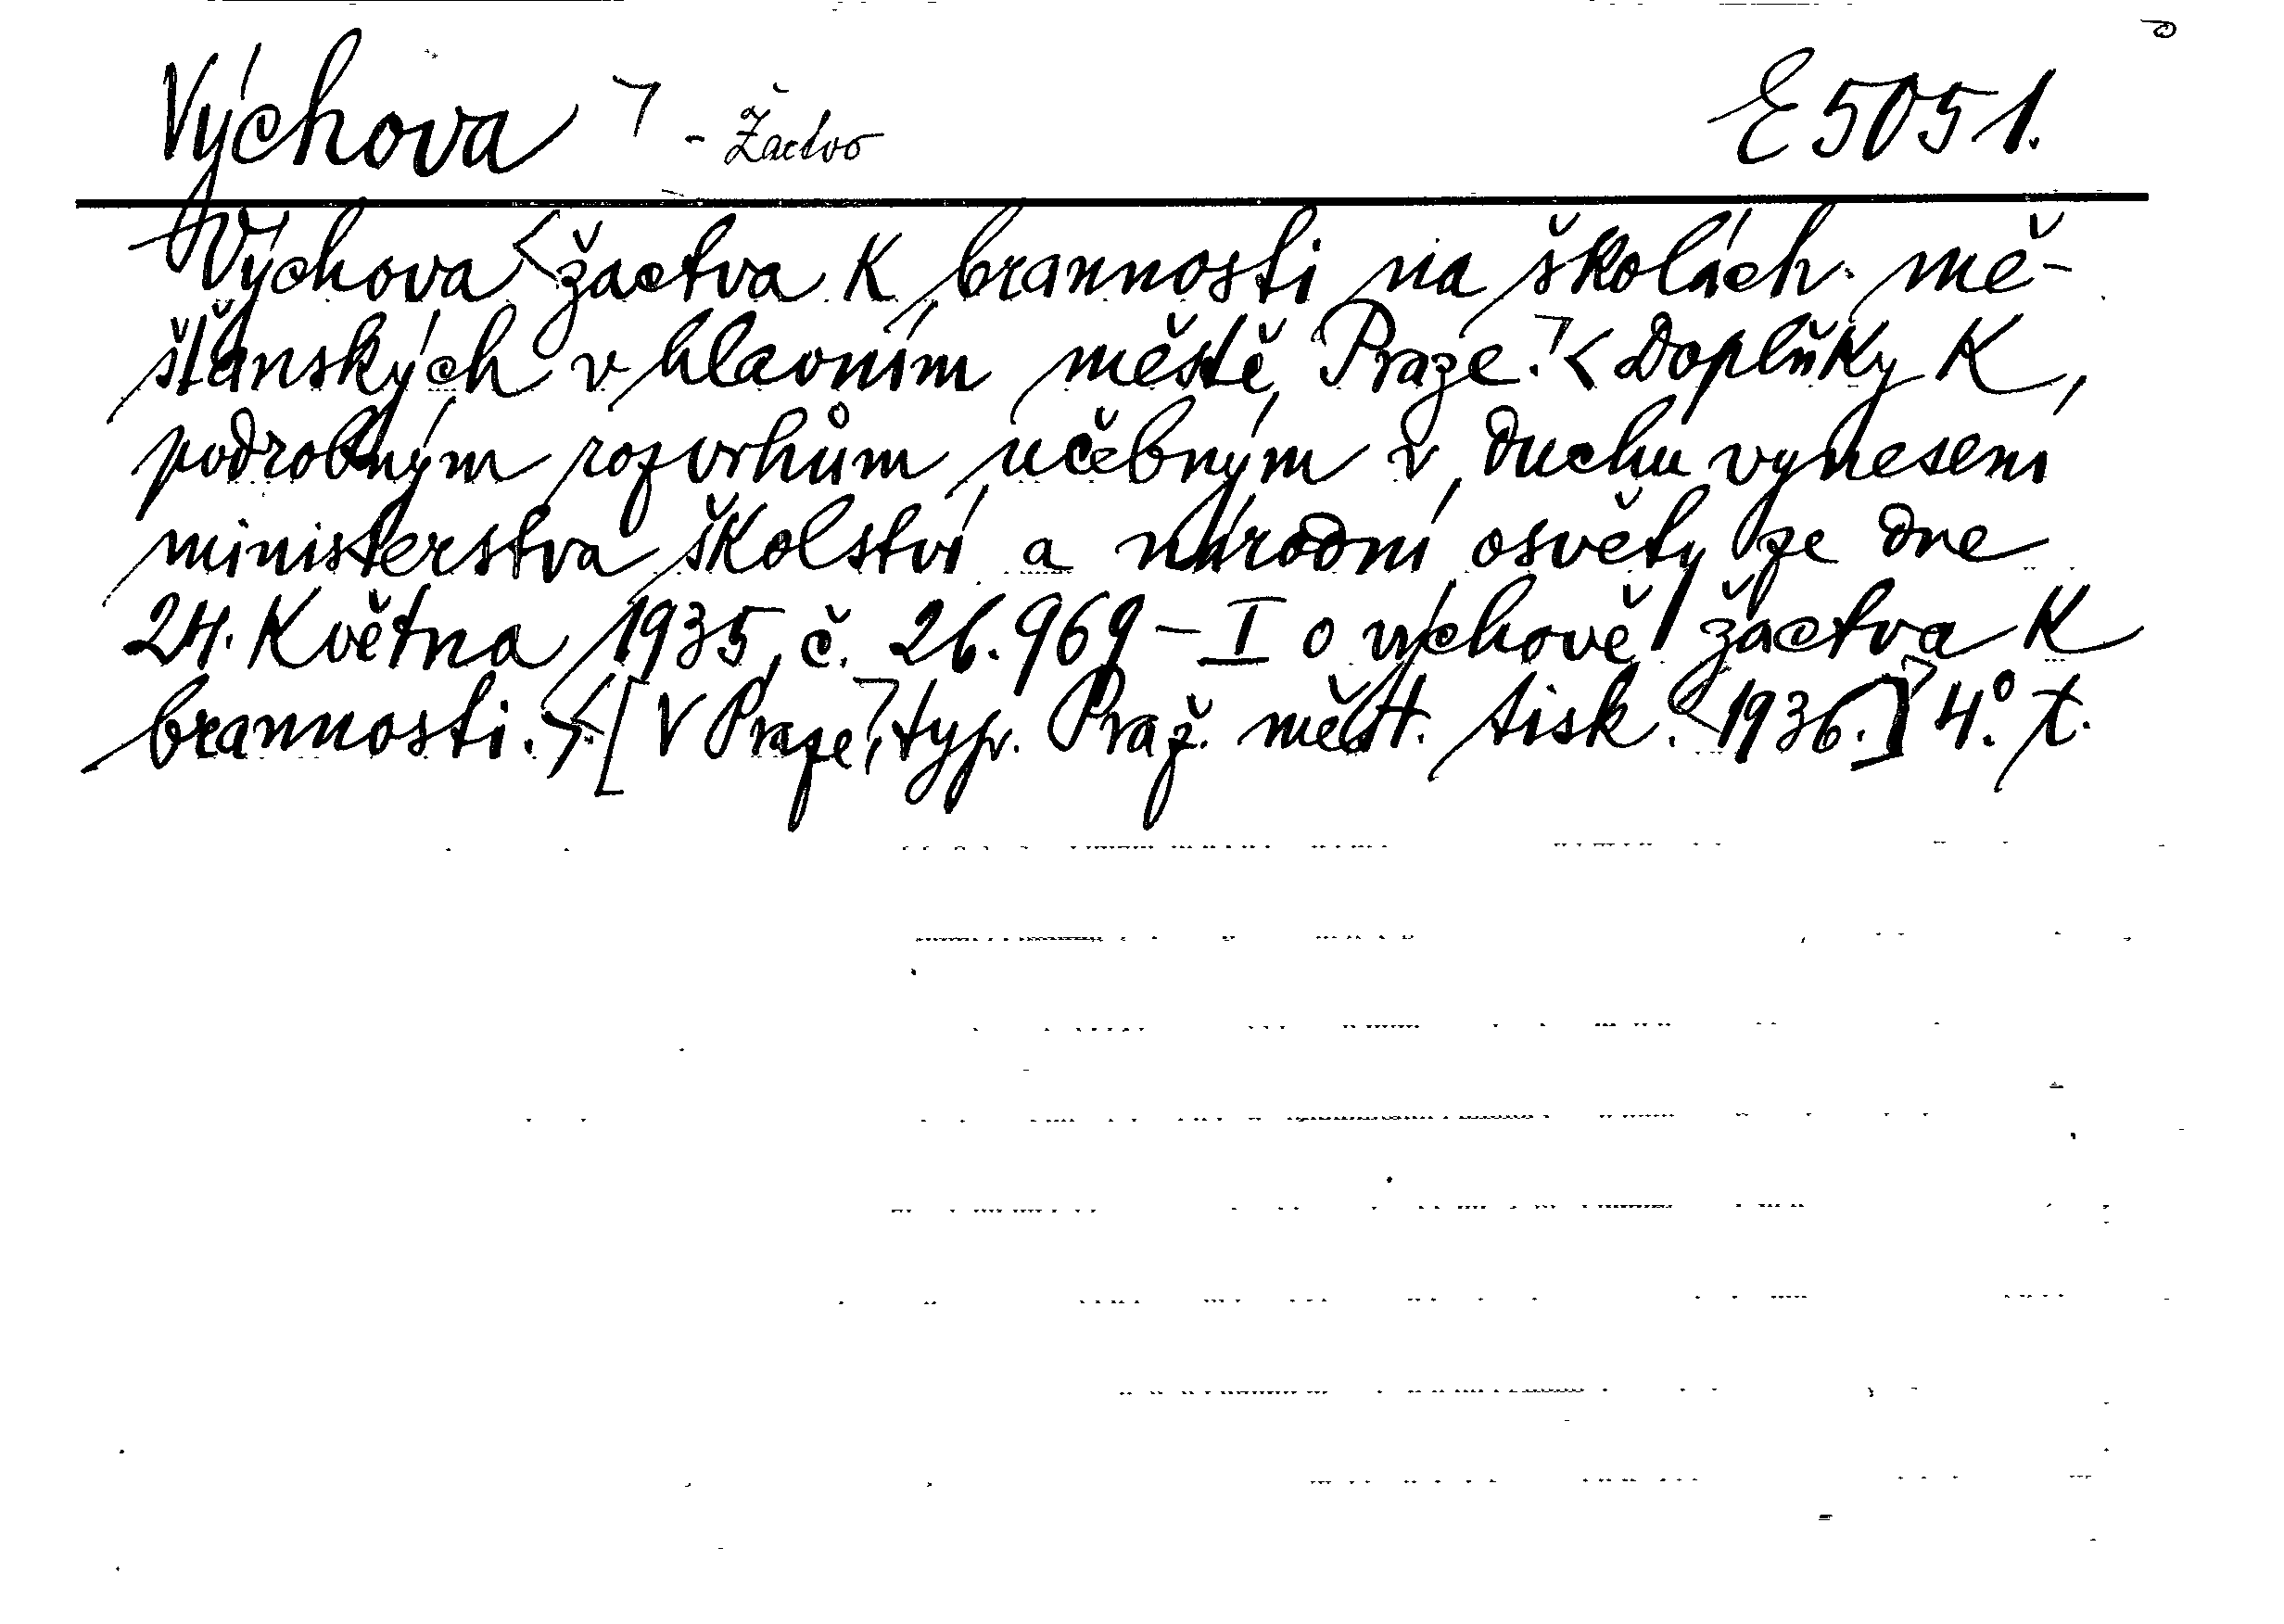 Výchova - Žactvo E 5051.
Výchova žactva k brannosti na školách mě-
šťanských v hlavním městě Praze. Doplňky k
podrobným rozvrhům učebným v duchu vynesení
ministerstva školství a národní osvěty ze dne
24. května 1935, č. 26.969-I o výchově žactva k
brannosti. [V Praze, typ. Praž. měst. tisk. 1936.] 4°. t.